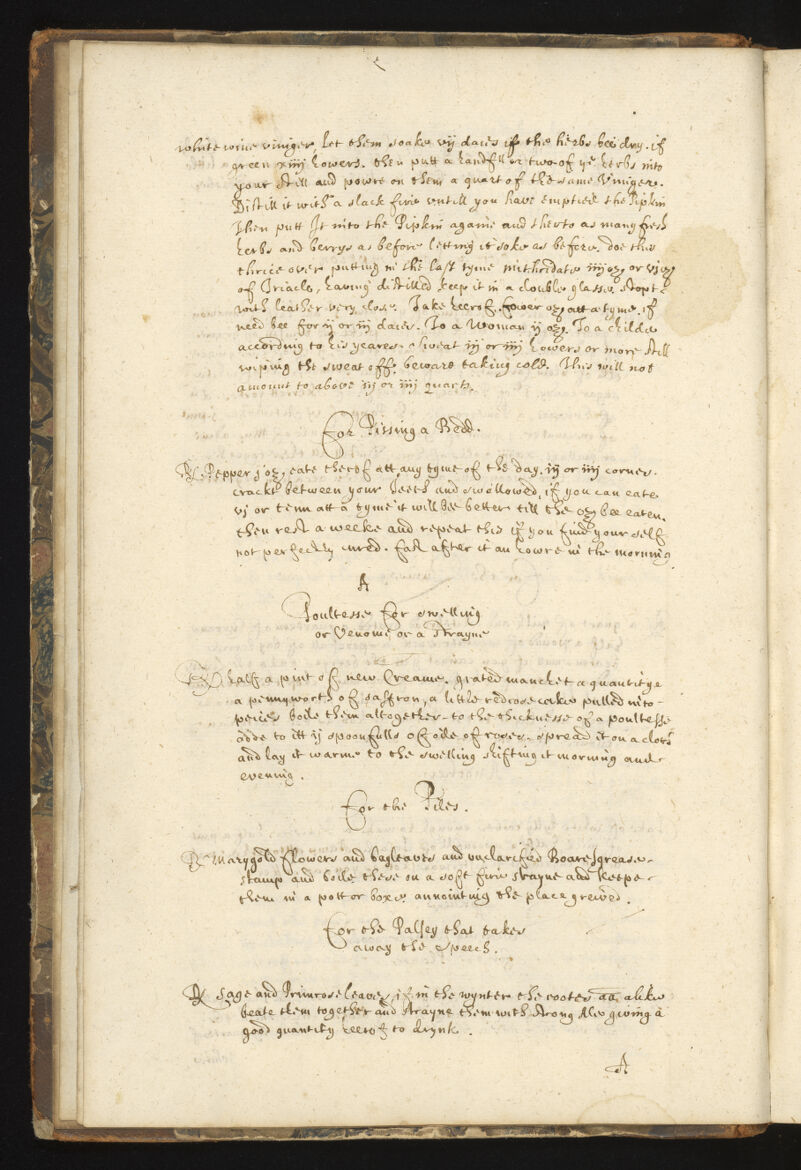 white wine viniger, let them soake vij daies if the herbs bee dry. if
green xiiij howers. then putt a handfull or two of ye herbs into
your still and powre on them a quart of the same viniger.
Distill it with a slack fire vntill you have emptied the Pipkin
Then putt It into the Pipkin againe and therto as many fresh
herbs and berrys as before letting it soke as before. doe this
thrice over putting in the last tyme mithridate iiij oz or vj oz
of Triacle, having distilled keep it in a double glasse stopt
with leather very close. Take heerof fower oz att a tyme, if
need bee for ij or iij daies. To a Woman ij oz. To a childe
according to his yeares. sweat iij or iiij howers or more still
wiping the sweat off, beware taking cold. This will not
amount to above iij or iiij quarts.
For Pissing a Bedd.
℞ Pepper j oz, eate therof att any tyme of the day. iij or iiij cornes
crackt between your teeth and swallowed, if you can eate
vj or tenn att a tyme it will bee better till the oz bee eaten,
then rest a weeke and repeat this if you find your self
not perfectly cured. fast after it an howre in the morning
A
Poultesse for swelling
or Venome or a strayne
℞ halfe a pint of new Creame, grated manchet a quantitye
a pennyworth of saffron, a little redrose cake pulled into
peices boile them altogether to the thicknesse of a poultesse
adde to itt ij spoonfulls of oile of roses. spread it on a cloth
and lay it warme to the swelling shifting it morning and
evening.
For the Piles.
℞ Marygold flowers and leaves and vnclarified Boares grease
stamp and boile these on a soft fire strayne and keepe
them in a pott or boxe annointing the place greived.
For the Palsey that takes
away the speech.
℞ Sage and Primrose leaves, if in the wynter the rootes aa. alike
beate them together and strayne them with strong Ale giving a
good quantity heerof to drynk.
A